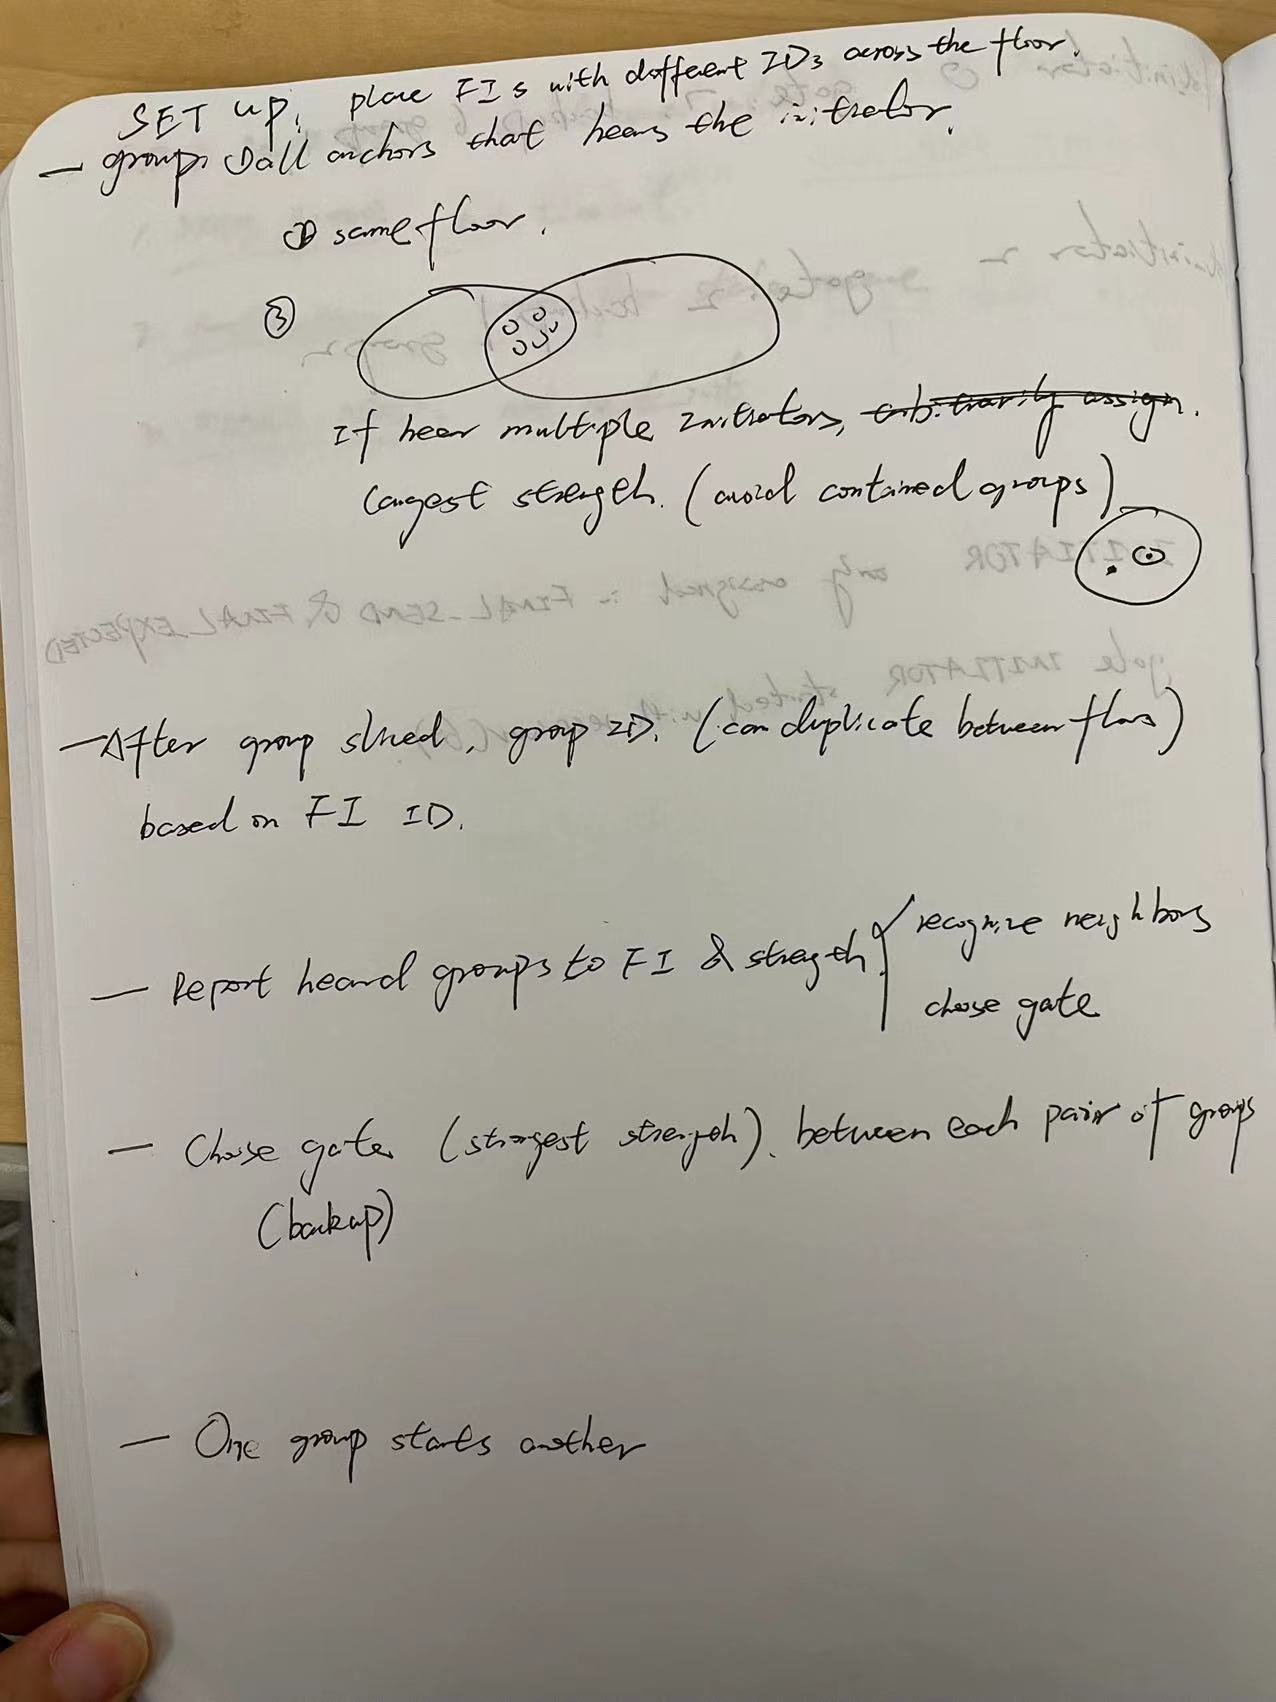 SET up, place FIs with different IDs across the floor.
— group: ① all anchors that hears the initiator.
② same floor.
③
If hear multiple Initiators, arbitrarily assign.
largest strength. (avoid contained groups)
— After group sliced, group ID. (can duplicate between floors)
based on FI ID.
— Report heard groups to FI & strength
recognize neighbors
chose gate
— Chose gate (strongest strength). between each pair of groups
(backup)
— One group starts another